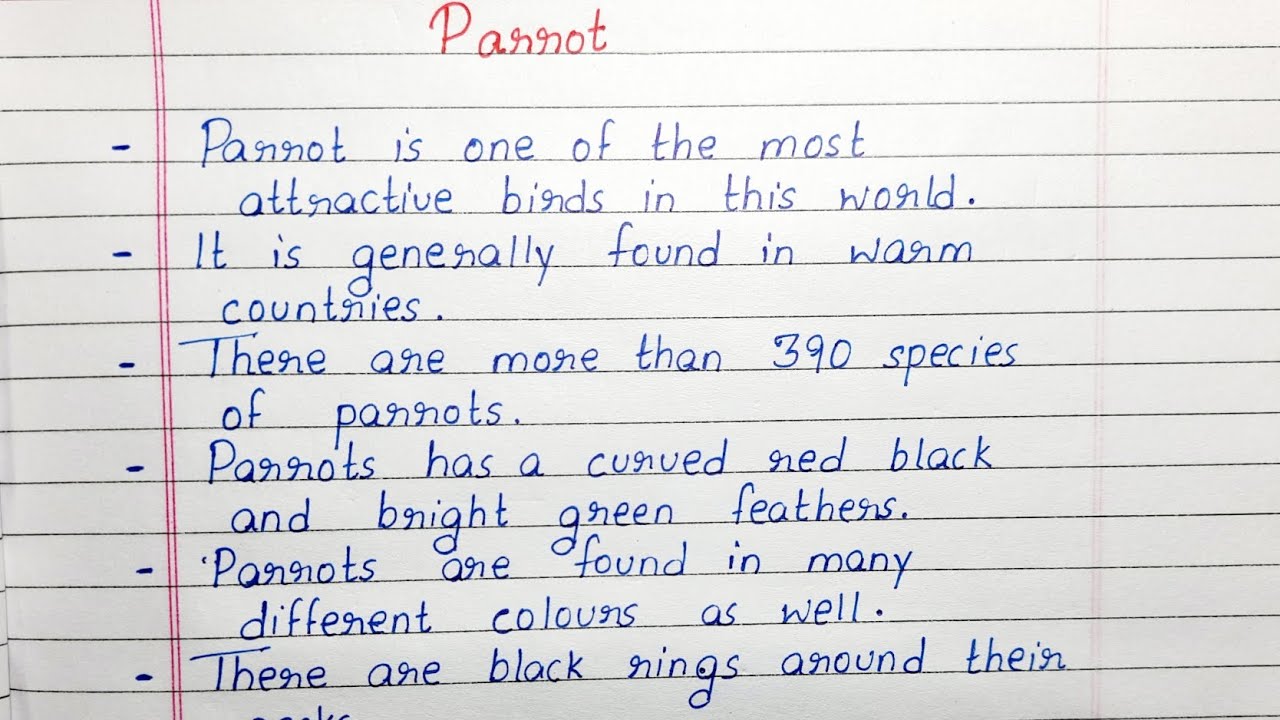 Parrot
- Parrot is one of the most
attractive birds in this world.
- It is generally found in warm
countries.
- There are more than 390 species
of parrots.
- Parrots has a curved red black
and bright green feathers.
- Parrots are found in many
different colours as well.
- There are black rings around their